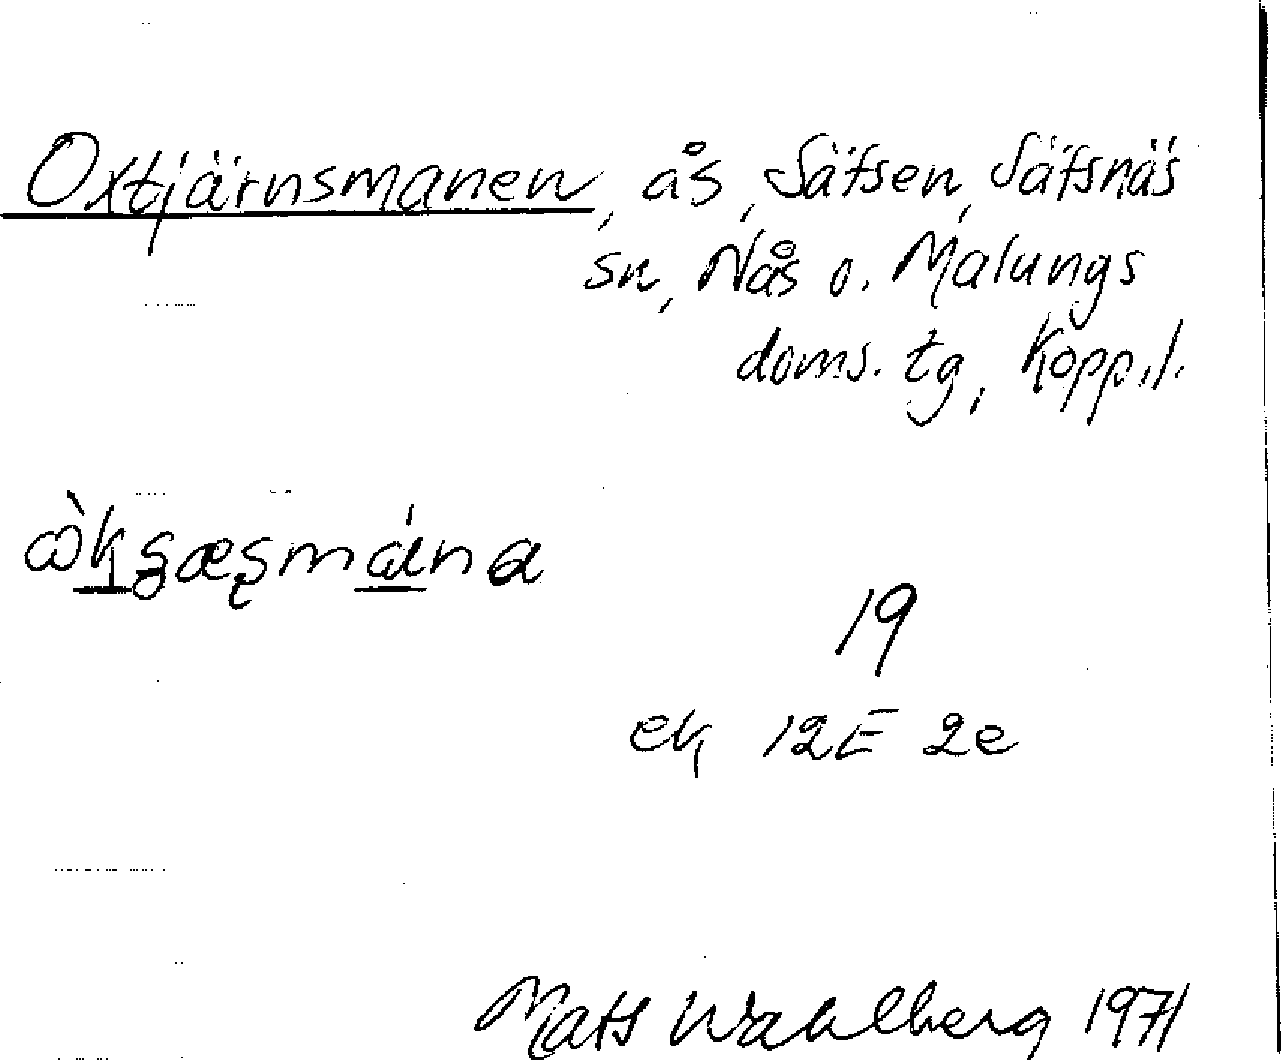 Oxtjärnsmanen, ås, Säfsen, Säfsnäs
sn, Nås o. Malungs
doms. tg, Kopp.l.
19
ek 12E 2e
Mats Wahlberg 1971